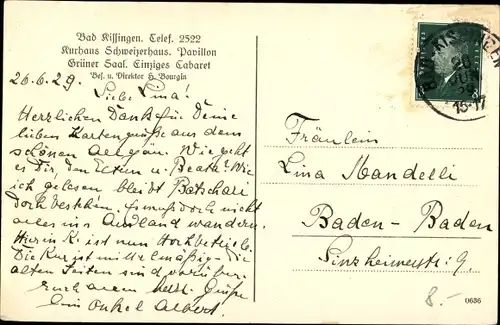 Bad Kissingen. Telef. 2522
Kurhaus Schweizerhaus. Pavillon
Grüner Saal. Einziges Cabaret
Bes. u. Direktor H. Bourgin
26.6.29.
Liebe Lina!
Herzlichen Dank für Deine
lieben Kartengrüße aus dem
schönen Allgäu. Wie geht
es Dir, den Eltern u. Beate? Wie
ich gelesen bleibt Batschari
doch bestehen. Es muß doch nicht
alles ins Ausland wandern.
Hier in K. ist nun Hochbetrieb.
Die Kur ist mittelmäßig - die
alten Zeiten sind vorüber.
Euch allen herzl. Grüße
Dein Onkel Albert.
BAD KISSINGEN
26
JUN
15-17
Fräulein
Lina Mandelli
Baden-Baden
Sinzheimerstr. 9.
8.-
0636